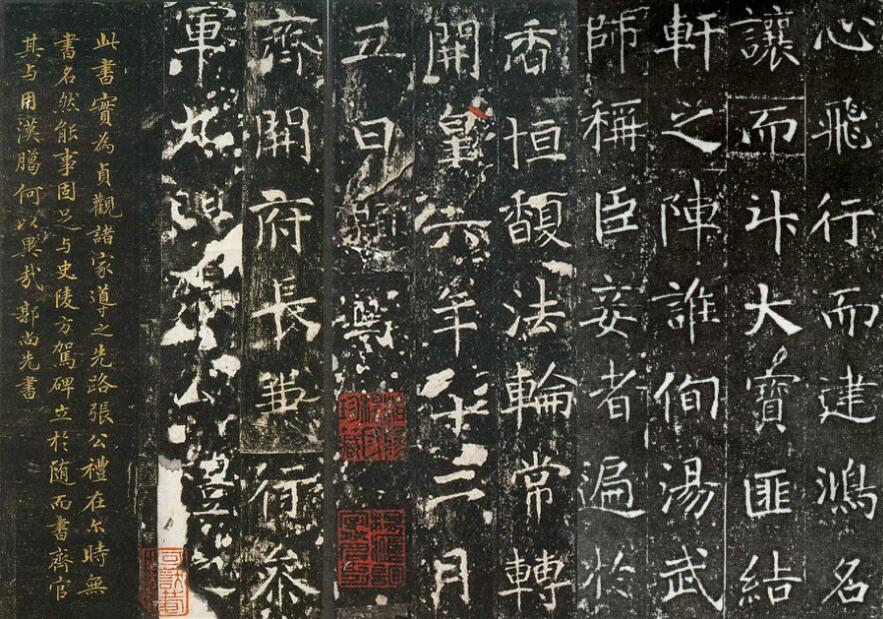 心飛行而建鴻名
讓而升大寶匪結
軒之陣誰侚湯武
師稱臣妾者遍於
香恒馥法輪常轉
開皇六年十二月
五日題
齊開府長兼行參
軍九門張公禮之
此書實為貞觀諸家導之先路張公禮在尒時無
書名然能事固足与史陵方駕碑立於随而書齊官
其与用漢臘何以異哉郭尚先書